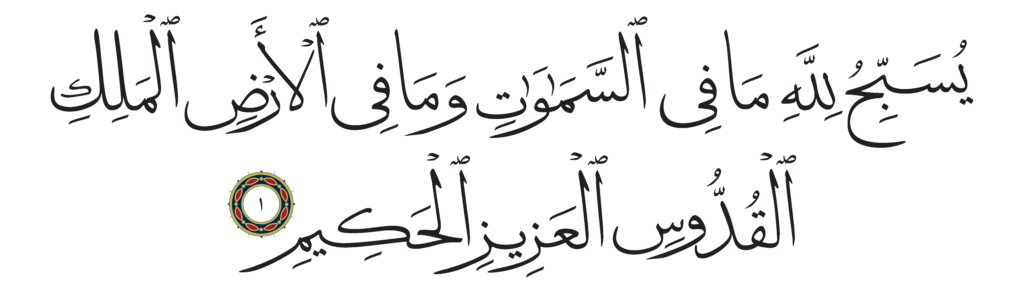 يُسَبِّحُ لِلَّهِ مَا فِى ٱلسَّمَـٰوَٰتِ وَمَا فِى ٱلْأَرْضِ ٱلْمَلِكِ
ٱلْقُدُّوسِ ٱلْعَزِيزِ ٱلْحَكِيمِ ١